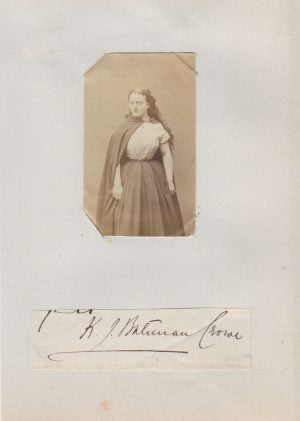 K. J. Bateman Crowe